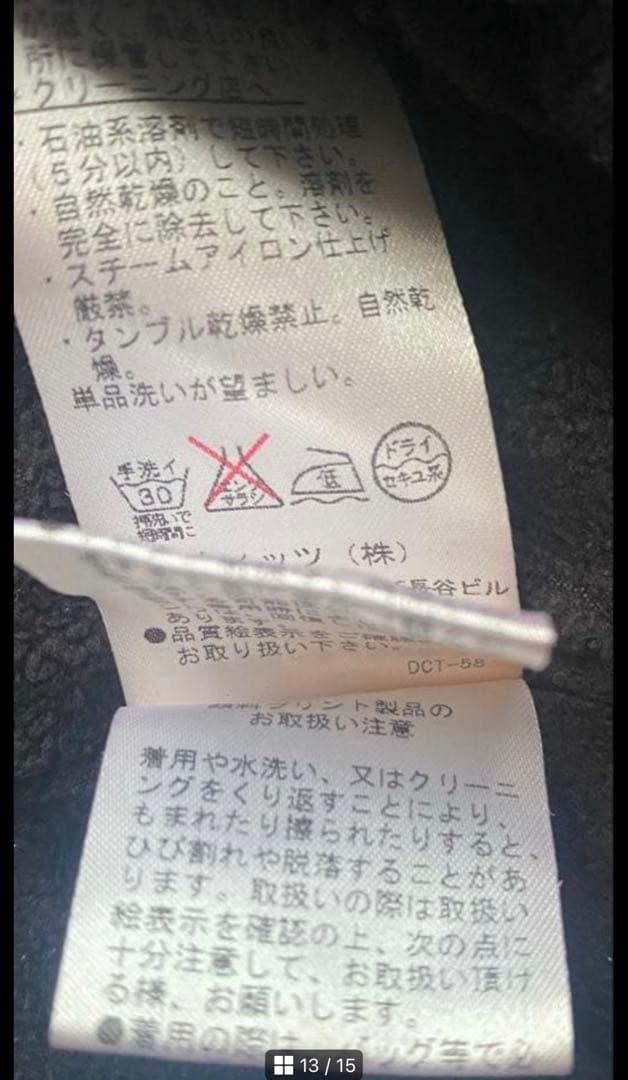 所に保管して下さい。
クリーニング店へ
・石油系溶剤で短時間処理
(5分以内)して下さい。
・自然乾燥のこと。溶剤を
完全に除去して下さい。
・スチームアイロン仕上げ
厳禁。
・タンブル乾燥禁止。自然乾
燥。
単品洗いが望ましい。
手洗イ
30
サラシ
低
ドライ
セキユ系
押洗いで
短時間に
ッツ(株)
長谷ビル
●品質絵表示を
お取り扱い下さい。
DCT-58
プリント製品の
お取扱い注意
着用や水洗い、又はクリーニ
ングをくり返すことにより、
もまれたり擦られたりすると、
ひび割れや脱落することがあ
ります。取扱いの際は取扱い
絵表示を確認の上、次の点に
十分注意して、お取扱い頂け
る様、お願いします。
●着用の際は
ッグ等で
13 / 15